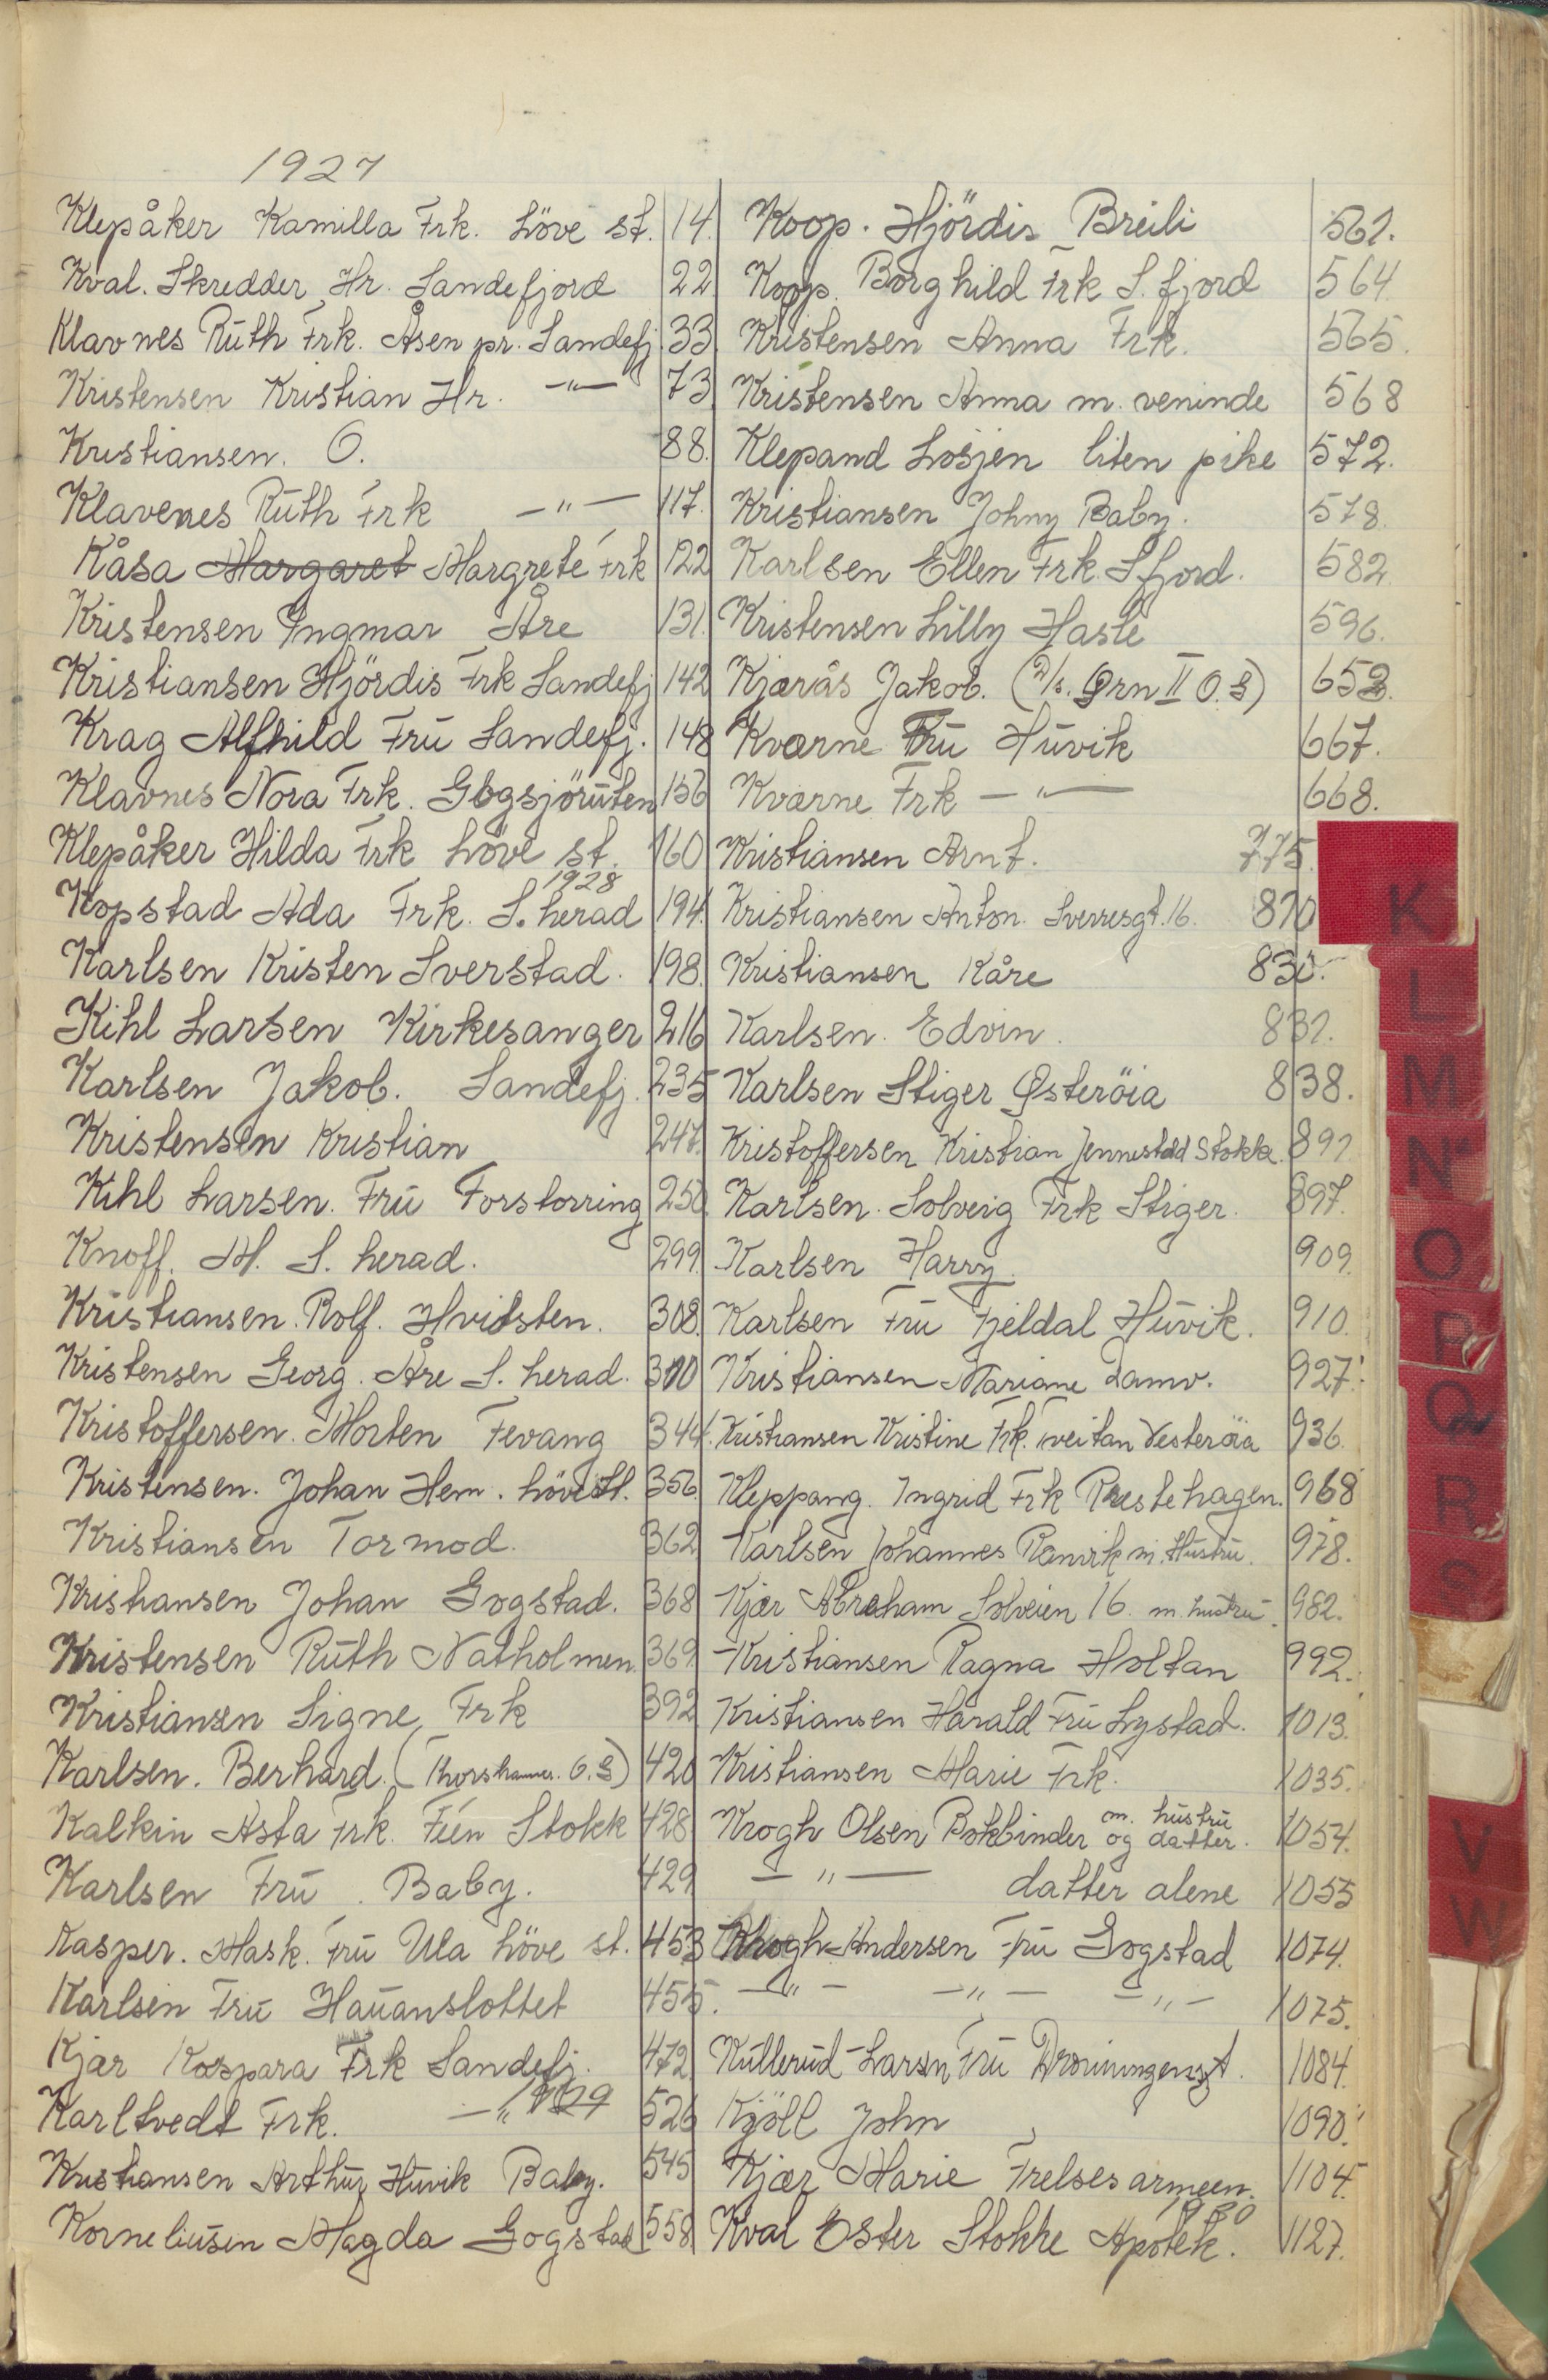 1927
Klepåker Kamilla Frk. Löve st. 14.
Kval. Skredder Hr. Sandefjord 22
Klavnes Ruth Frk. Åsen pr. Sandefj. 33
Kristensen Kristian Hr. —"— 73.
Kristiansen. O. 88.
Klavenes Ruth Frk —"— 117.
Kåsa Margaret Margrete Frk 122
Kristensen Ingmar Åre 131.
Kristiansen Hjördis Frk Sandefj 142
Krag Alfhild Fru Sandefj. 148
Klavnes Nora Frk. Gogsjöruten 156
Klepåker Hilda Frk Löve st. 160
1928
Kopstad Ada Frk. S. herad 194.
Karlsen Kristen Sverstad. 198.
Kihl Larsen Kirkesanger 216
Karlsen Jakob. Sandefj. 235
Kristensen Kristian 247.
Kihl Larsen. Fru Forstorring 250.
Knoff. M. S. herad. 299.
Kristiansen. Rolf. Hvidsten. 308.
Kristensen Georg. Åre S. herad. 310
Kristoffersen. Morten Fevang 344.
Kristensen. Johan Hem. Löve st. 356.
Kristiansen Tormod. 362
Kristiansen Johan Gogstad. 368
Kristensen Ruth Natholmen. 369
Kristiansen Signe Frk 392
Karlsen. Berhard. (Thorshammer. O. S) 420
Kalkin Asta Frk. Fén Stokk 428
Karlsen Fru. Baby. 429
Kasper. Mask. Fru Ula Löve st. 453
Karlsen Fru Hauanslottet 455.
Kjær Kaspara Frk Sandefj. 472
1929
Karltvedt Frk. —"— 526
Kristiansen Arthur Huvik Baby. 545
Korneliusen Magda Gogstad 558
Koop. Hjördis Breili 561.
Koop. Borghild Frk S. fjord 564
Kristensen Anna Frk. 565.
Kristensen Anna m. veninde 568
Klepand Losjen liten pike 572.
Kristiansen Johny Baby. 578.
Karlsen Ellen Frk. S fjord. 582
Kristensen Lilly Hasle 596.
Kjærås Jakob. (D/s. Ørn II O. S) 652.
Kværne Fru Huvik 667.
Kværne Frk —"— 668.
Kristiansen Arnt. 775.
Kristiansen Anton. Sverresgt. 16. 820
Kristiansen Kåre 830.
Karlsen. Edvin. 831.
Karlsen Stiger Østeröia 838.
Kristoffersen Kristian Jennestad Stokke. 891
Karlsen. Solveig Frk Stiger. 897.
Karlsen Harry. 909.
Karlsen Fru Fjeldal Huvik. 910.
Kristiansen Mariane Ramv. 927.
Kristiansen Kristine Frk. Tveitan Vesteröia 936.
Kleppang. Ingrid Frk Prestehagen. 968
Karlsen Johannes Ranvik m. Hustru. 978.
Kjær Abraham Solveien 16. m. hustru. 982.
Kristiansen Ragna Holtan 992.
Kristiansen Harald Fru Lystad. 1013.
Kristiansen Marie Frk. 1035.
Krogh Olsen Bokbinder m. hustru og datter. 1054.
—"— datter alene 1055
Krogh-Andersen Fru Gogstad 1074.
—"— —"— —"— 1075.
Kullerud-Larsen Fru Dronningensgt. 1084.
Kjöll John 1090.
Kjær Marie Frelsesarmeen. 1104.
1930
Kval Ester Stokke Apotek. 1127.
K
L
M
N
O
P
Q
R
S
V
W